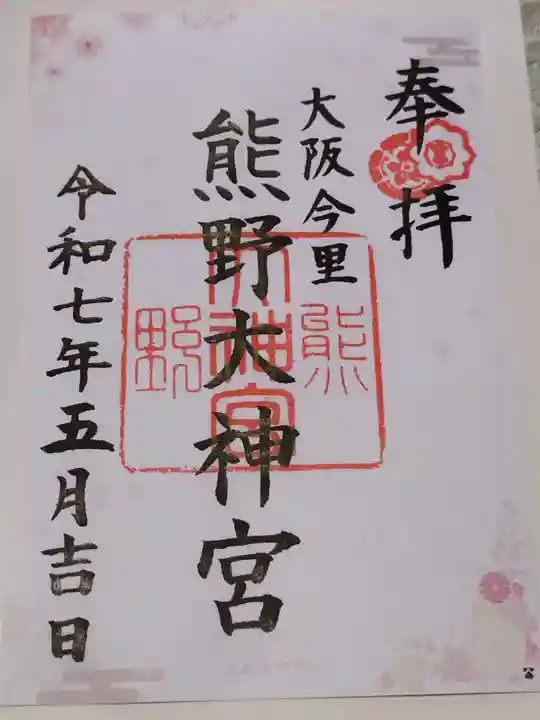 奉拝
大阪今里
熊野大神宮
熊
大神宮
野
令和七年五月吉日